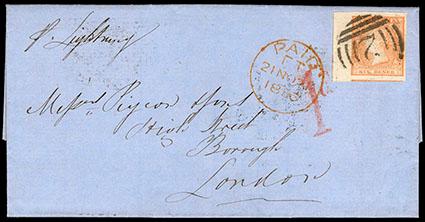 p. Lightning
PAID
LT
21 NO
2
SIX PENCE
1
Messrs Pigeon & Son
High Street
Borough
London